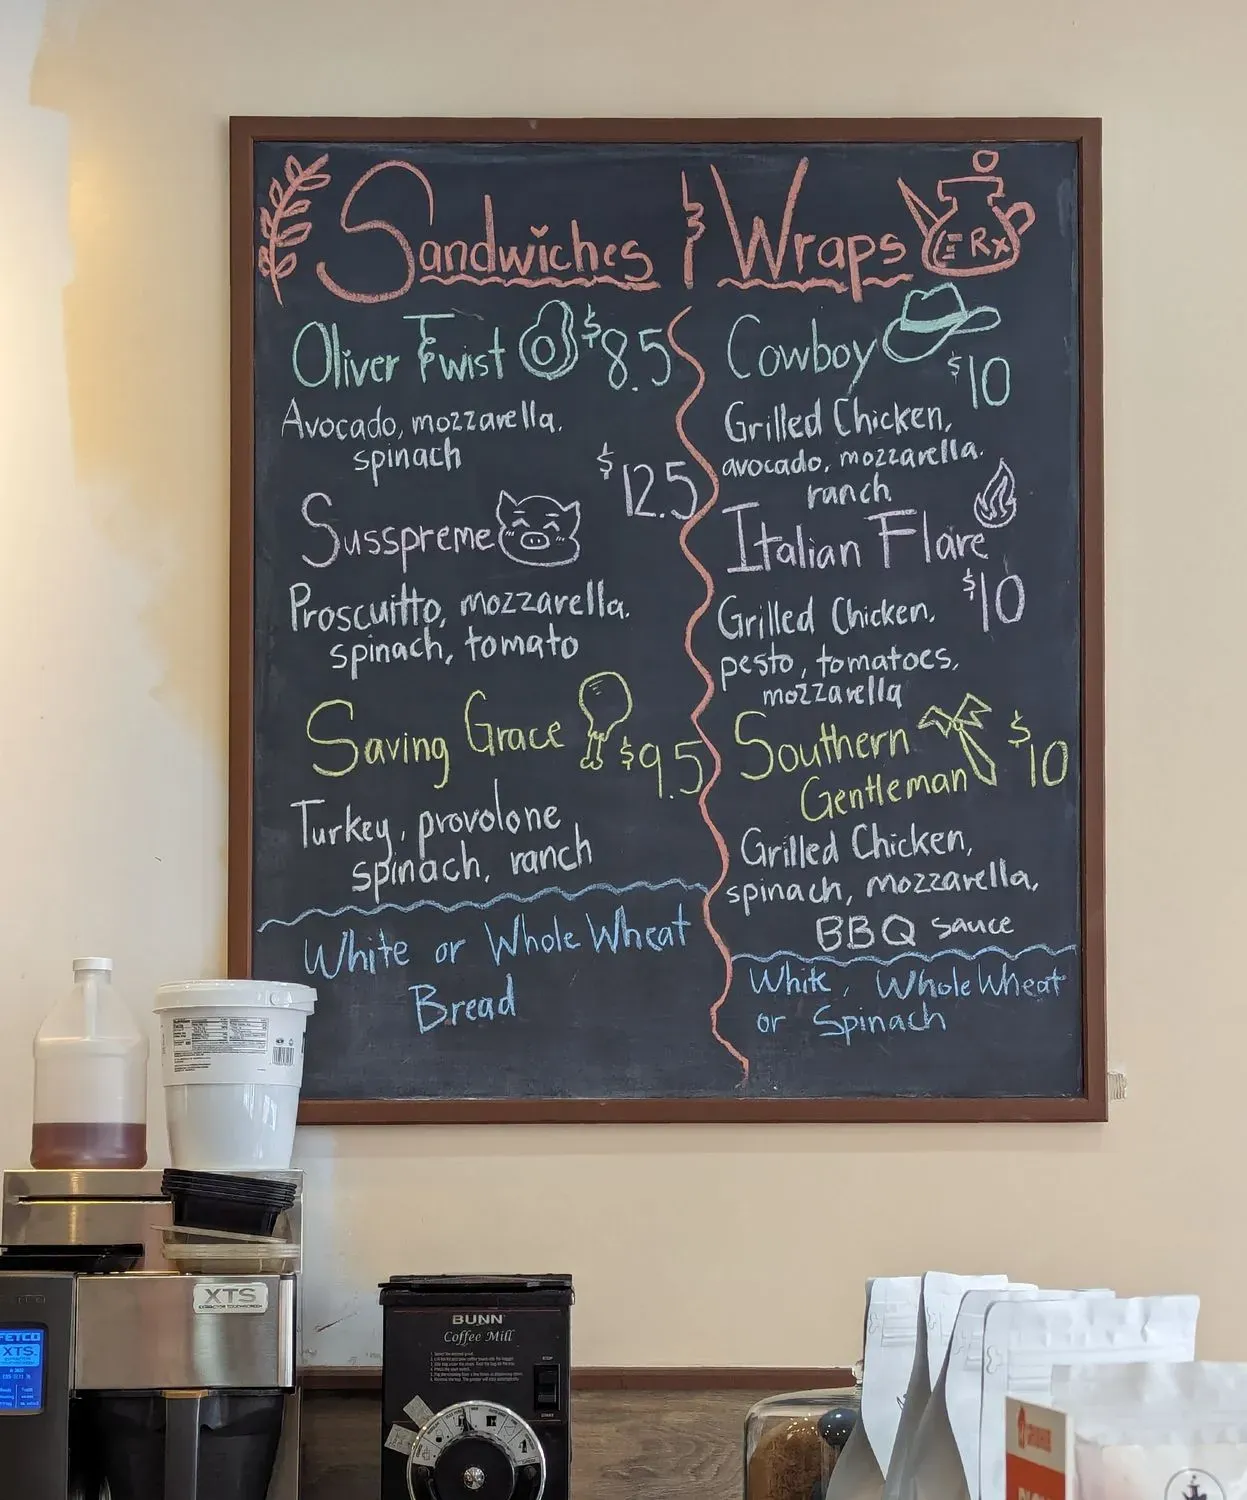 Sandwiches & Wraps
ERx
Oliver Twist $8.5
Avocado, mozzarella,
spinach
$12.5
Susspreme
Proscuitto, mozzarella,
spinach, tomato
Saving Grace $9.5
Turkey, provolone
spinach, ranch
White or Whole Wheat
Bread
Cowboy
$10
Grilled Chicken,
avocado, mozzarella,
ranch
Italian Flare
$10
Grilled Chicken,
pesto, tomatoes,
mozzarella
Southern $10
Gentleman
Grilled Chicken,
spinach, mozzarella,
BBQ sauce
White, Whole Wheat
or Spinach
XTS
EXTRACTOR TOUCHSCREEN
FETCO
XTS
BUNN
Coffee Mill